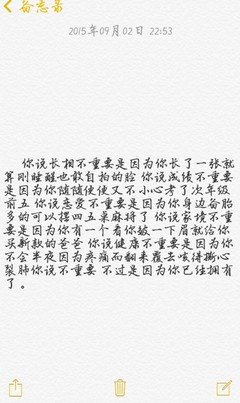 备忘录
2015年09月02日 22:53
你说长相不重要是因为你长了一张就
算刚睡醒也敢自拍的脸 你说成绩不重要
是因为你随随便便又不小心考了次年级
前五 你说恋爱不重要是因为你身边备胎
多的可以摆四五桌麻将了 你说家境不重
要是因为你有一个看你皱一下眉就给你
买新款的爸爸 你说健康不重要是因为你
不会半夜因为疼痛而翻来覆去咳得撕心
裂肺你说不重要 不过是因为你已经拥有
了。